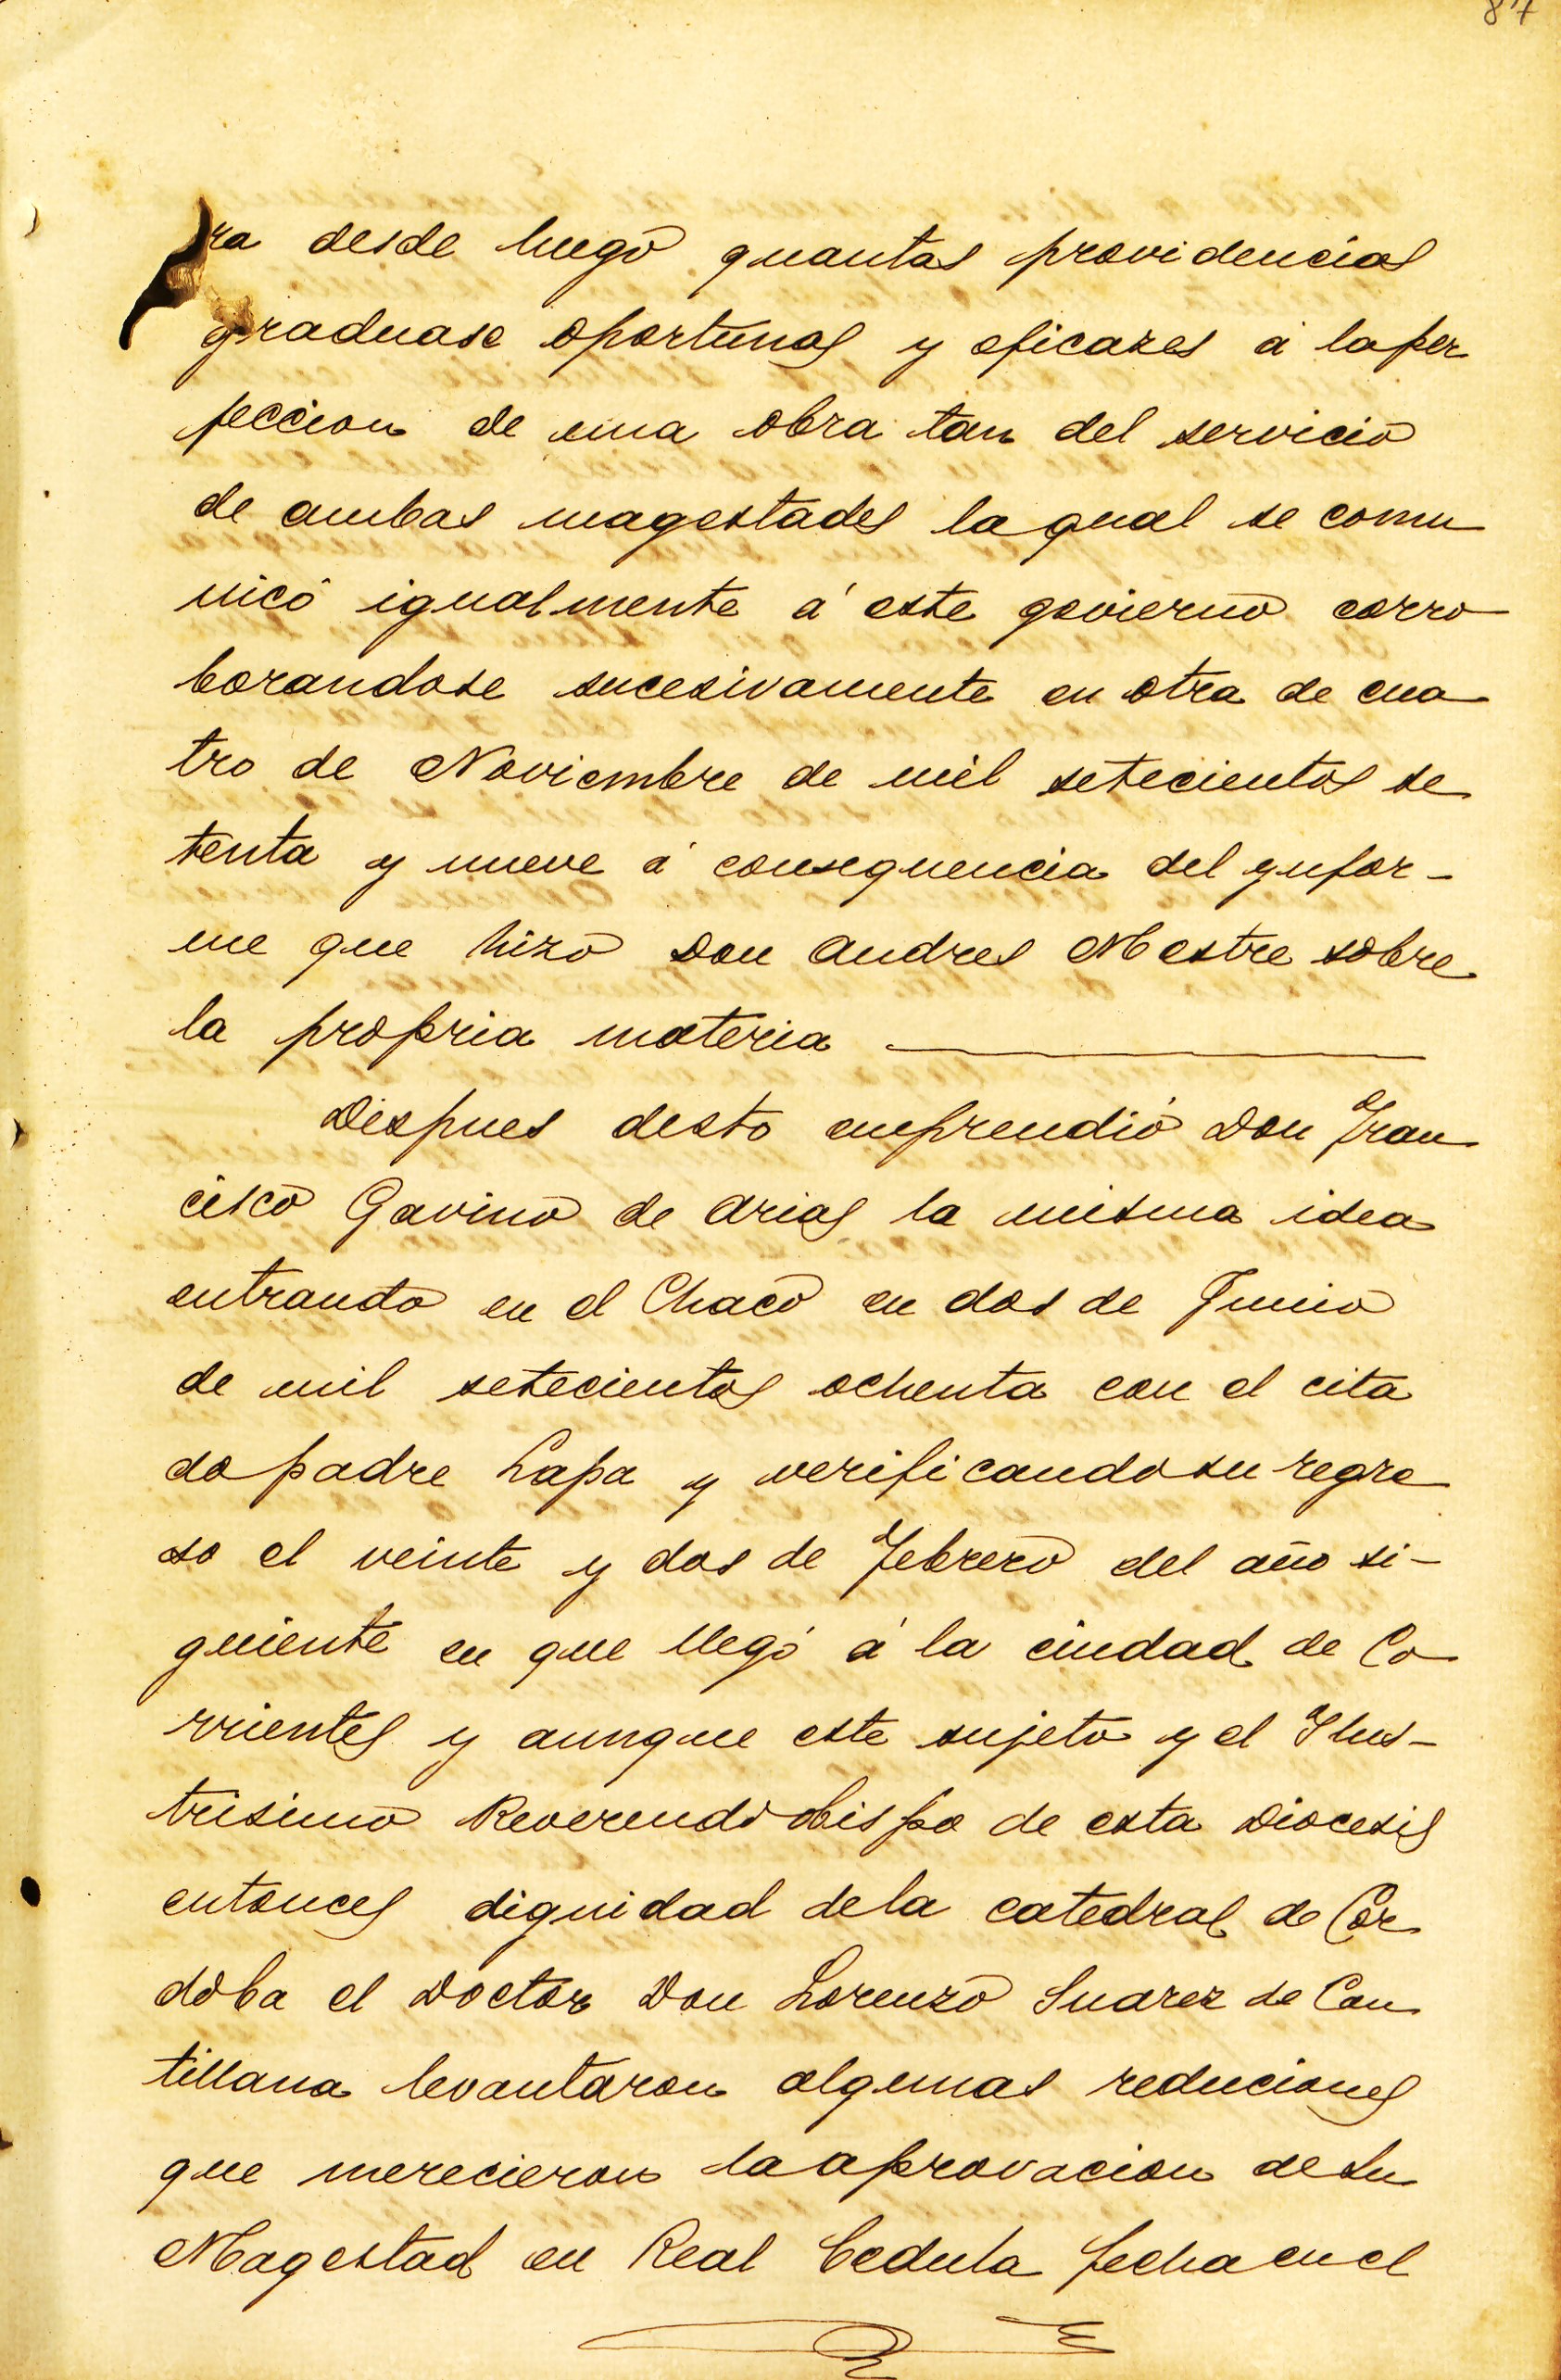 87
ra desde luego quantas providencias
graduase oportunas y eficazes á laper
feccion de una obra tan del servicio
de ambas magestades laqual se comu
nicó igualmente á este govierno corro
borandose sucesivamente en otra de cua
tro de Noviembre de mil setecientos se
tenta y nueve á consequencia del ynfor-
me que hizo Don Andres Mestre sobre
la propria materia
Despues desto emprendió Don Fran
cisco Gavino de Arias la misma idea
entrando en el Chaco en dos de Junio
de mil setecientos ochenta con el cita
do padre Lapa y verificandosu regre
so el veinte y dos de Febrero del año si-
guiente en que llegó á la ciudad de Co
rrientes y aunque este sujeto y el Ilus-
trisimo Reverendo obispo de esta Diocesis
entonces dignidad dela catedral de Cor
doba el Doctor Don Lorenzo Suarez de Can
tillana levantaron algunas reduciones
que merecieron laaprovacion desu
Magestad en Real Cedula fecha enel